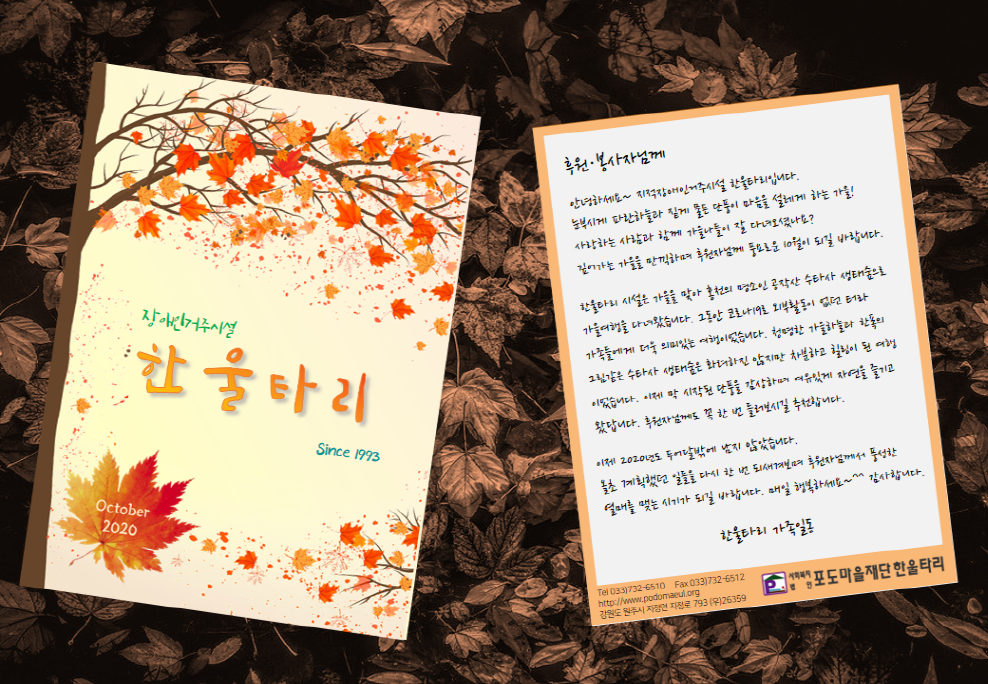 장애인거주시설
한울타리
Since 1993
October
2020
후원·봉사자님께
안녕하세요~ 지적장애인거주시설 한울타리입니다.
눈부시게 파란하늘과 짙게 물든 단풍이 마음을 설레게 하는 가을!
사랑하는 사람과 함께 가을나들이 잘 다녀오셨나요?
깊어가는 가을을 만끽하며 후원자님께 풍요로운 10월이 되길 바랍니다.
한울타리 시설은 가을을 맞아 홍천의 명소인 공작산 수타사 생태숲으로
가을여행을 다녀왔습니다. 그동안 코로나19로 외부활동이 없던 터라
가족들에게 더욱 의미있는 여행이었습니다. 청명한 가을하늘과 한폭의
그림같은 수타사 생태숲은 화려하진 않지만 차분하고 힐링이 된 여행
이었습니다. 이제 막 시작된 단풍을 감상하며 여유있게 자연을 즐기고
왔답니다. 후원자님께도 꼭 한 번 들러보시길 추천합니다.
이제 2020년도 두어달밖에 남지 않았습니다.
올초 계획했던 일들을 다시 한 번 되새겨보며 후원자님께서 풍성한
열매를 맺는 시기가 되길 바랍니다. 매일 행복하세요~^^ 감사합니다.
한울타리 가족일동
Tel 033)732-6510 Fax 033)732-6512
http://www.podomaeul.org
강원도 원주시 지정면 지정로 793 (우)26359
사회복지법인 포도마을재단 한울타리